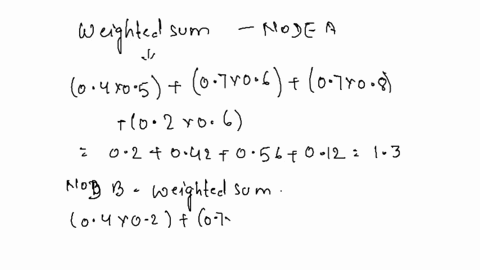 Weighted sum - NODE A
↓
(0.4×0.5) + (0.7×0.6) + (0.7×0.8)
+(0.2×0.6)
= 0.2 + 0.42 + 0.56 + 0.12 = 1.3
NOD B - Weighted sum.
(0.4×0.2) + (0.7